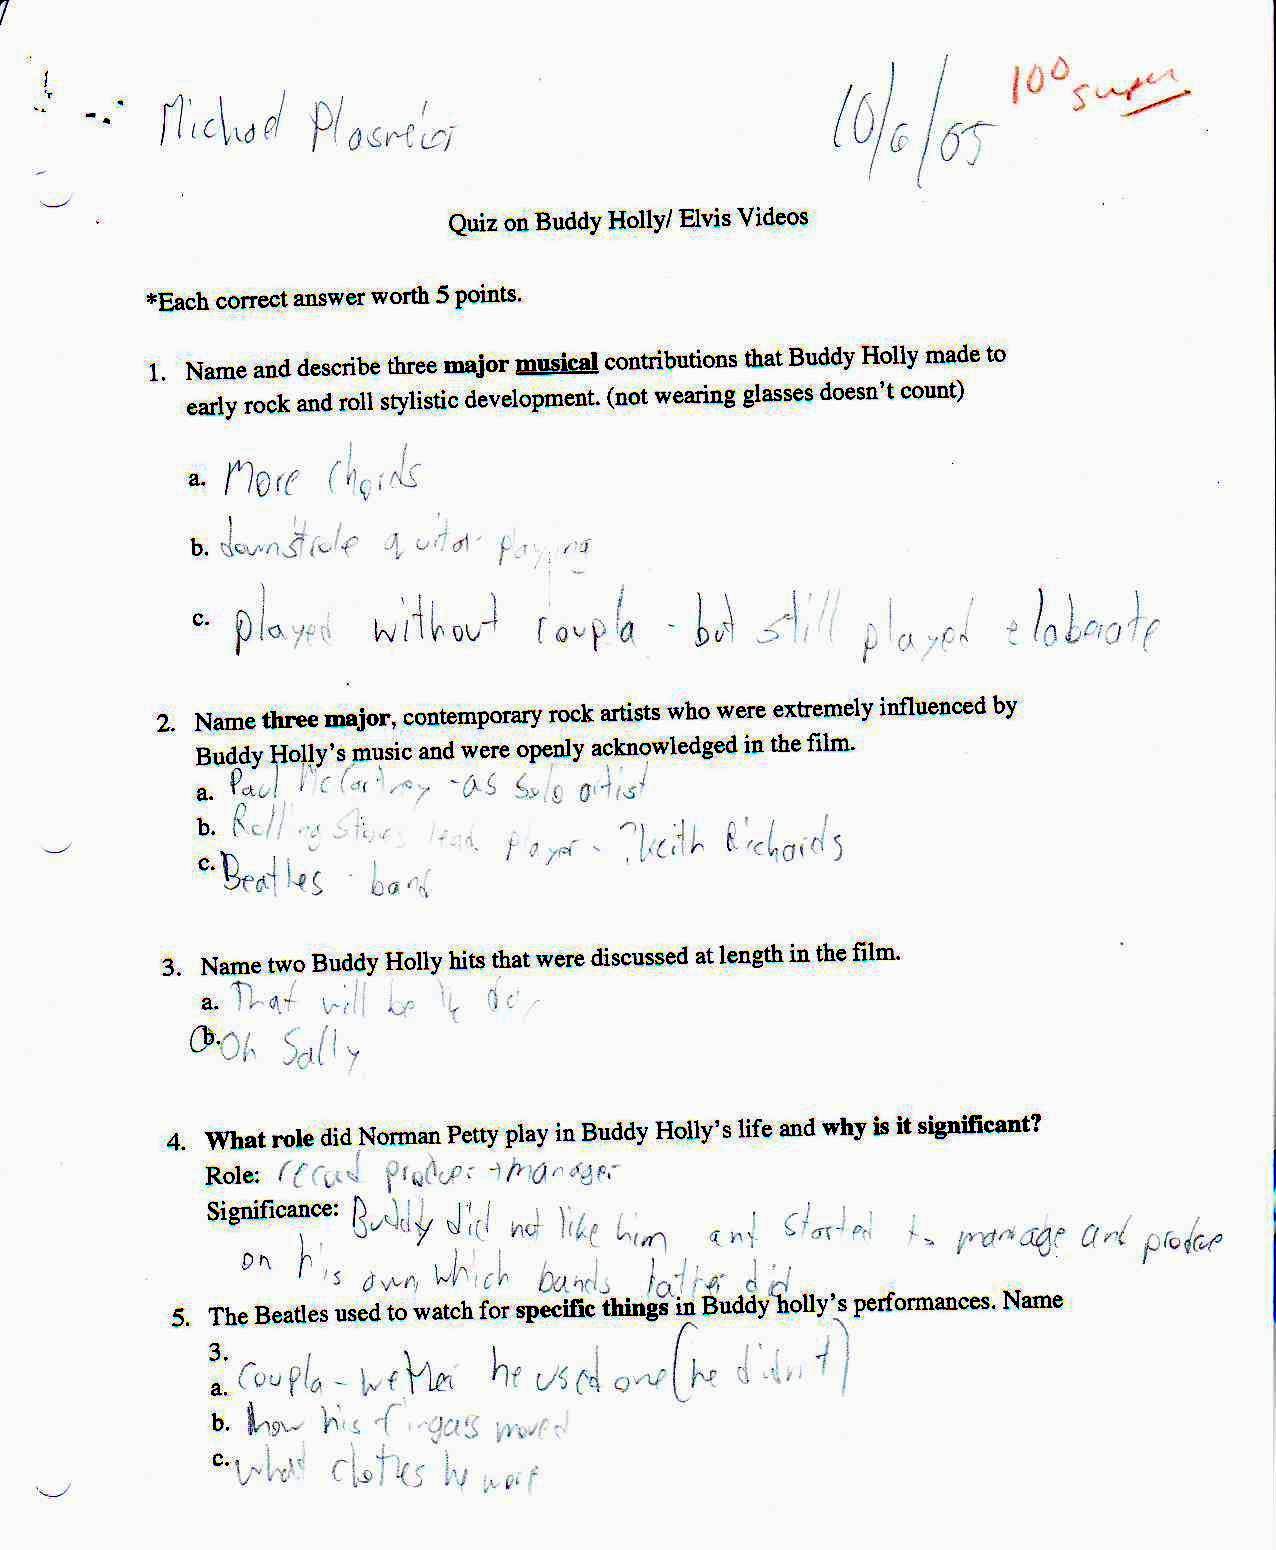 Michael
10/6/05
100
super
Quiz on Buddy Holly/ Elvis Videos
*Each correct answer worth 5 points.
1. Name and describe three major musical contributions that Buddy Holly made to
early rock and roll stylistic development. (not wearing glasses doesn't count)
a. More Chords
b. downstroke guitar playing
c. played without coupla - but still played elaborate
2. Name three major, contemporary rock artists who were extremely influenced by
Buddy Holly's music and were openly acknowledged in the film.
a. Paul McCartney - as solo artist
b. Rolling Stones lead player - ?Keith Richards
c. Beatles - band
3. Name two Buddy Holly hits that were discussed at length in the film.
a. That will be the day
b. Oh Sally
4. What role did Norman Petty play in Buddy Holly's life and why is it significant?
Role: record producer + manager
Significance: Buddy did not like him and started to manage and produce
on his own, which bands latter did
5. The Beatles used to watch for specific things in Buddy holly's performances. Name
3.
a. Coupla - wether he used one (he didn't)
b. how his fingars moved
c. what clothes he wore